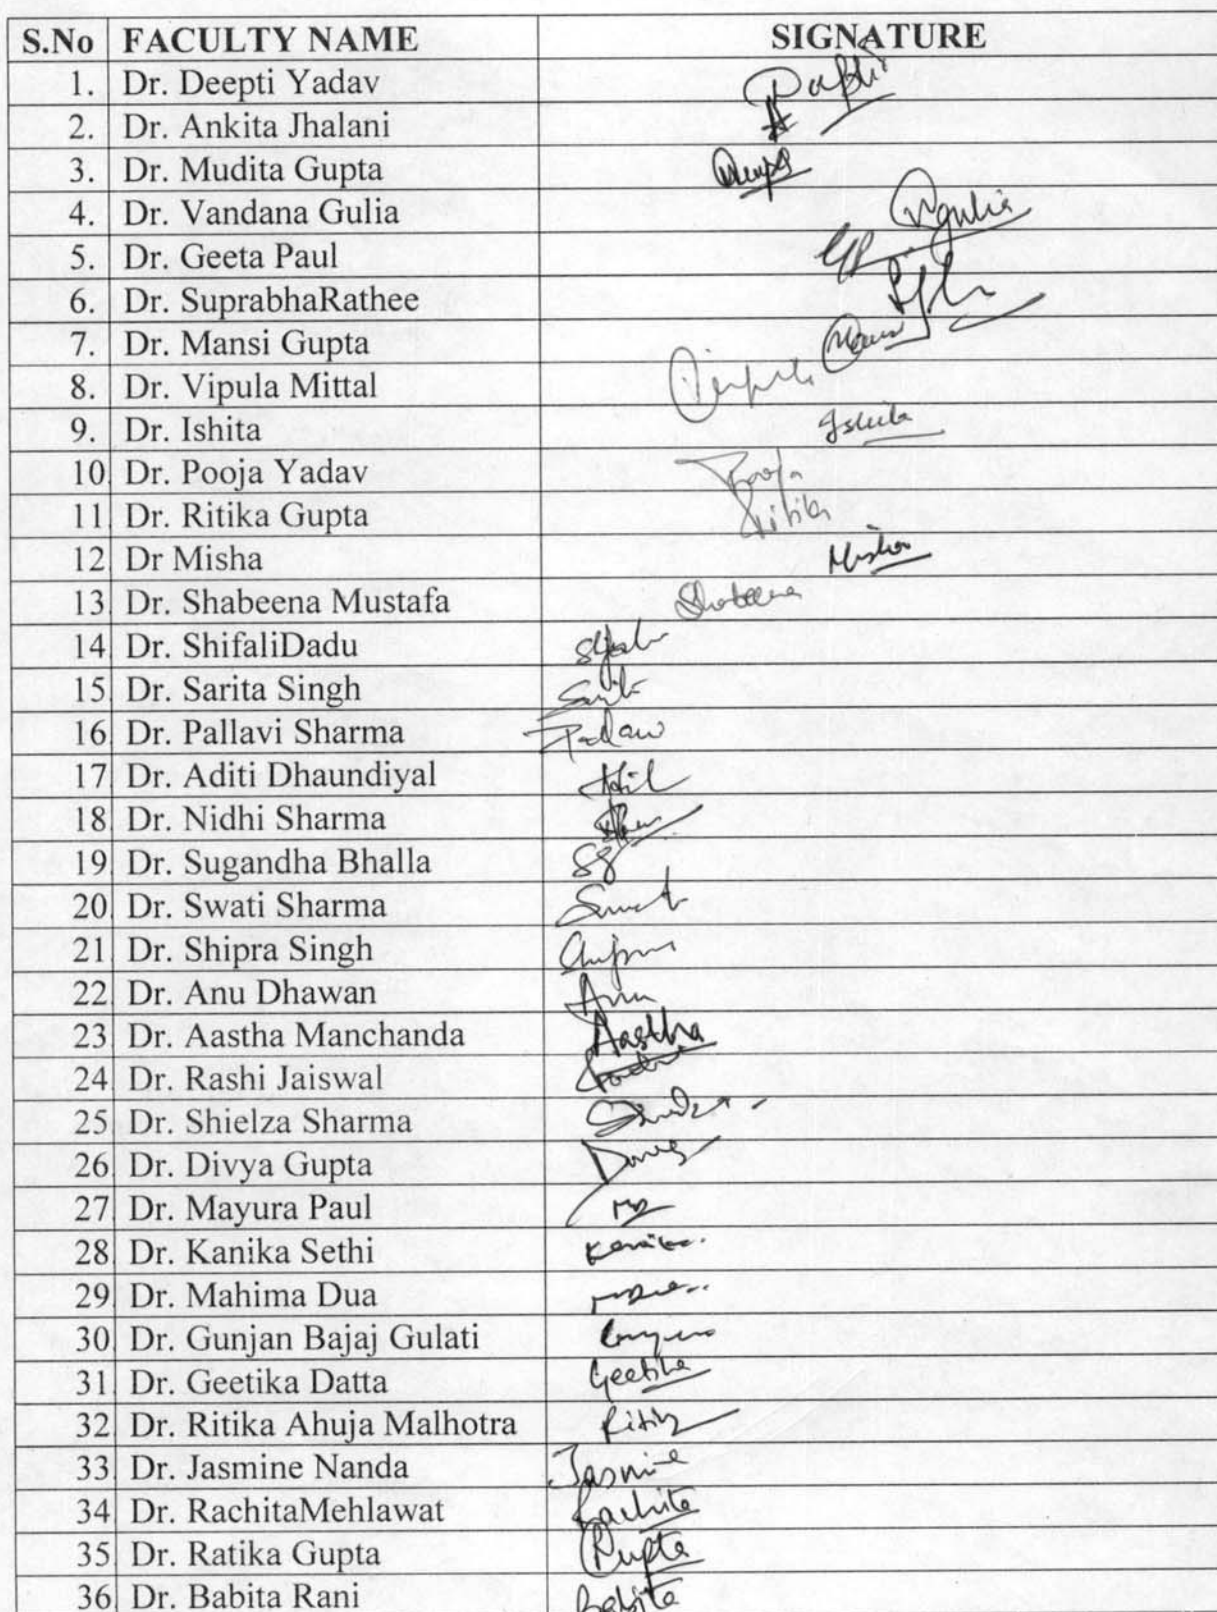 S.No FACULTY NAME SIGNATURE
1. Dr. Deepti Yadav
2. Dr. Ankita Jhalani
3. Dr. Mudita Gupta
4. Dr. Vandana Gulia
5. Dr. Geeta Paul
6. Dr. SuprabhaRathee
7. Dr. Mansi Gupta
8. Dr. Vipula Mittal
9. Dr. Ishita Ishita
10 Dr. Pooja Yadav Pooja
11 Dr. Ritika Gupta Ritika
12 Dr Misha Misha
13 Dr. Shabeena Mustafa Shabeena
14 Dr. ShifaliDadu
15. Dr. Sarita Singh
16 Dr. Pallavi Sharma
17 Dr. Aditi Dhaundiyal
18 Dr. Nidhi Sharma
19 Dr. Sugandha Bhalla
20 Dr. Swati Sharma
21 Dr. Shipra Singh
22 Dr. Anu Dhawan Anu
23 Dr. Aastha Manchanda Aastha
24 Dr. Rashi Jaiswal
25 Dr. Shielza Sharma
26 Dr. Divya Gupta
27 Dr. Mayura Paul
28 Dr. Kanika Sethi Kanika
29 Dr. Mahima Dua
30 Dr. Gunjan Bajaj Gulati
31 Dr. Geetika Datta Geetika
32 Dr. Ritika Ahuja Malhotra
33 Dr. Jasmine Nanda Jasmine
34 Dr. RachitaMehlawat Rachita
35 Dr. Ratika Gupta RGupta
36 Dr. Babita Rani Babita